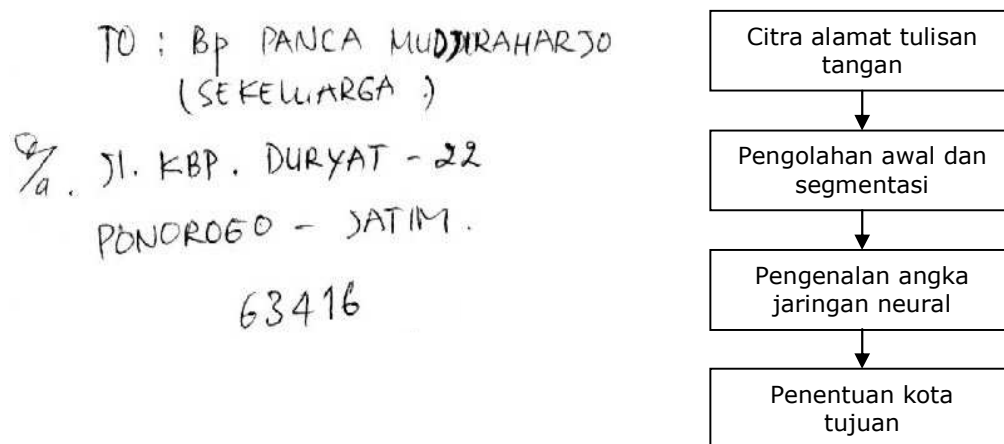 TO : Bp PANCA MUDJIRAHARJO
(SEKELUARGA )
d/a. Jl. KBP. DURYAT - 22
PONOROGO - JATIM.
63416
Citra alamat tulisan
tangan
Pengolahan awal dan
segmentasi
Pengenalan angka
jaringan neural
Penentuan kota
tujuan